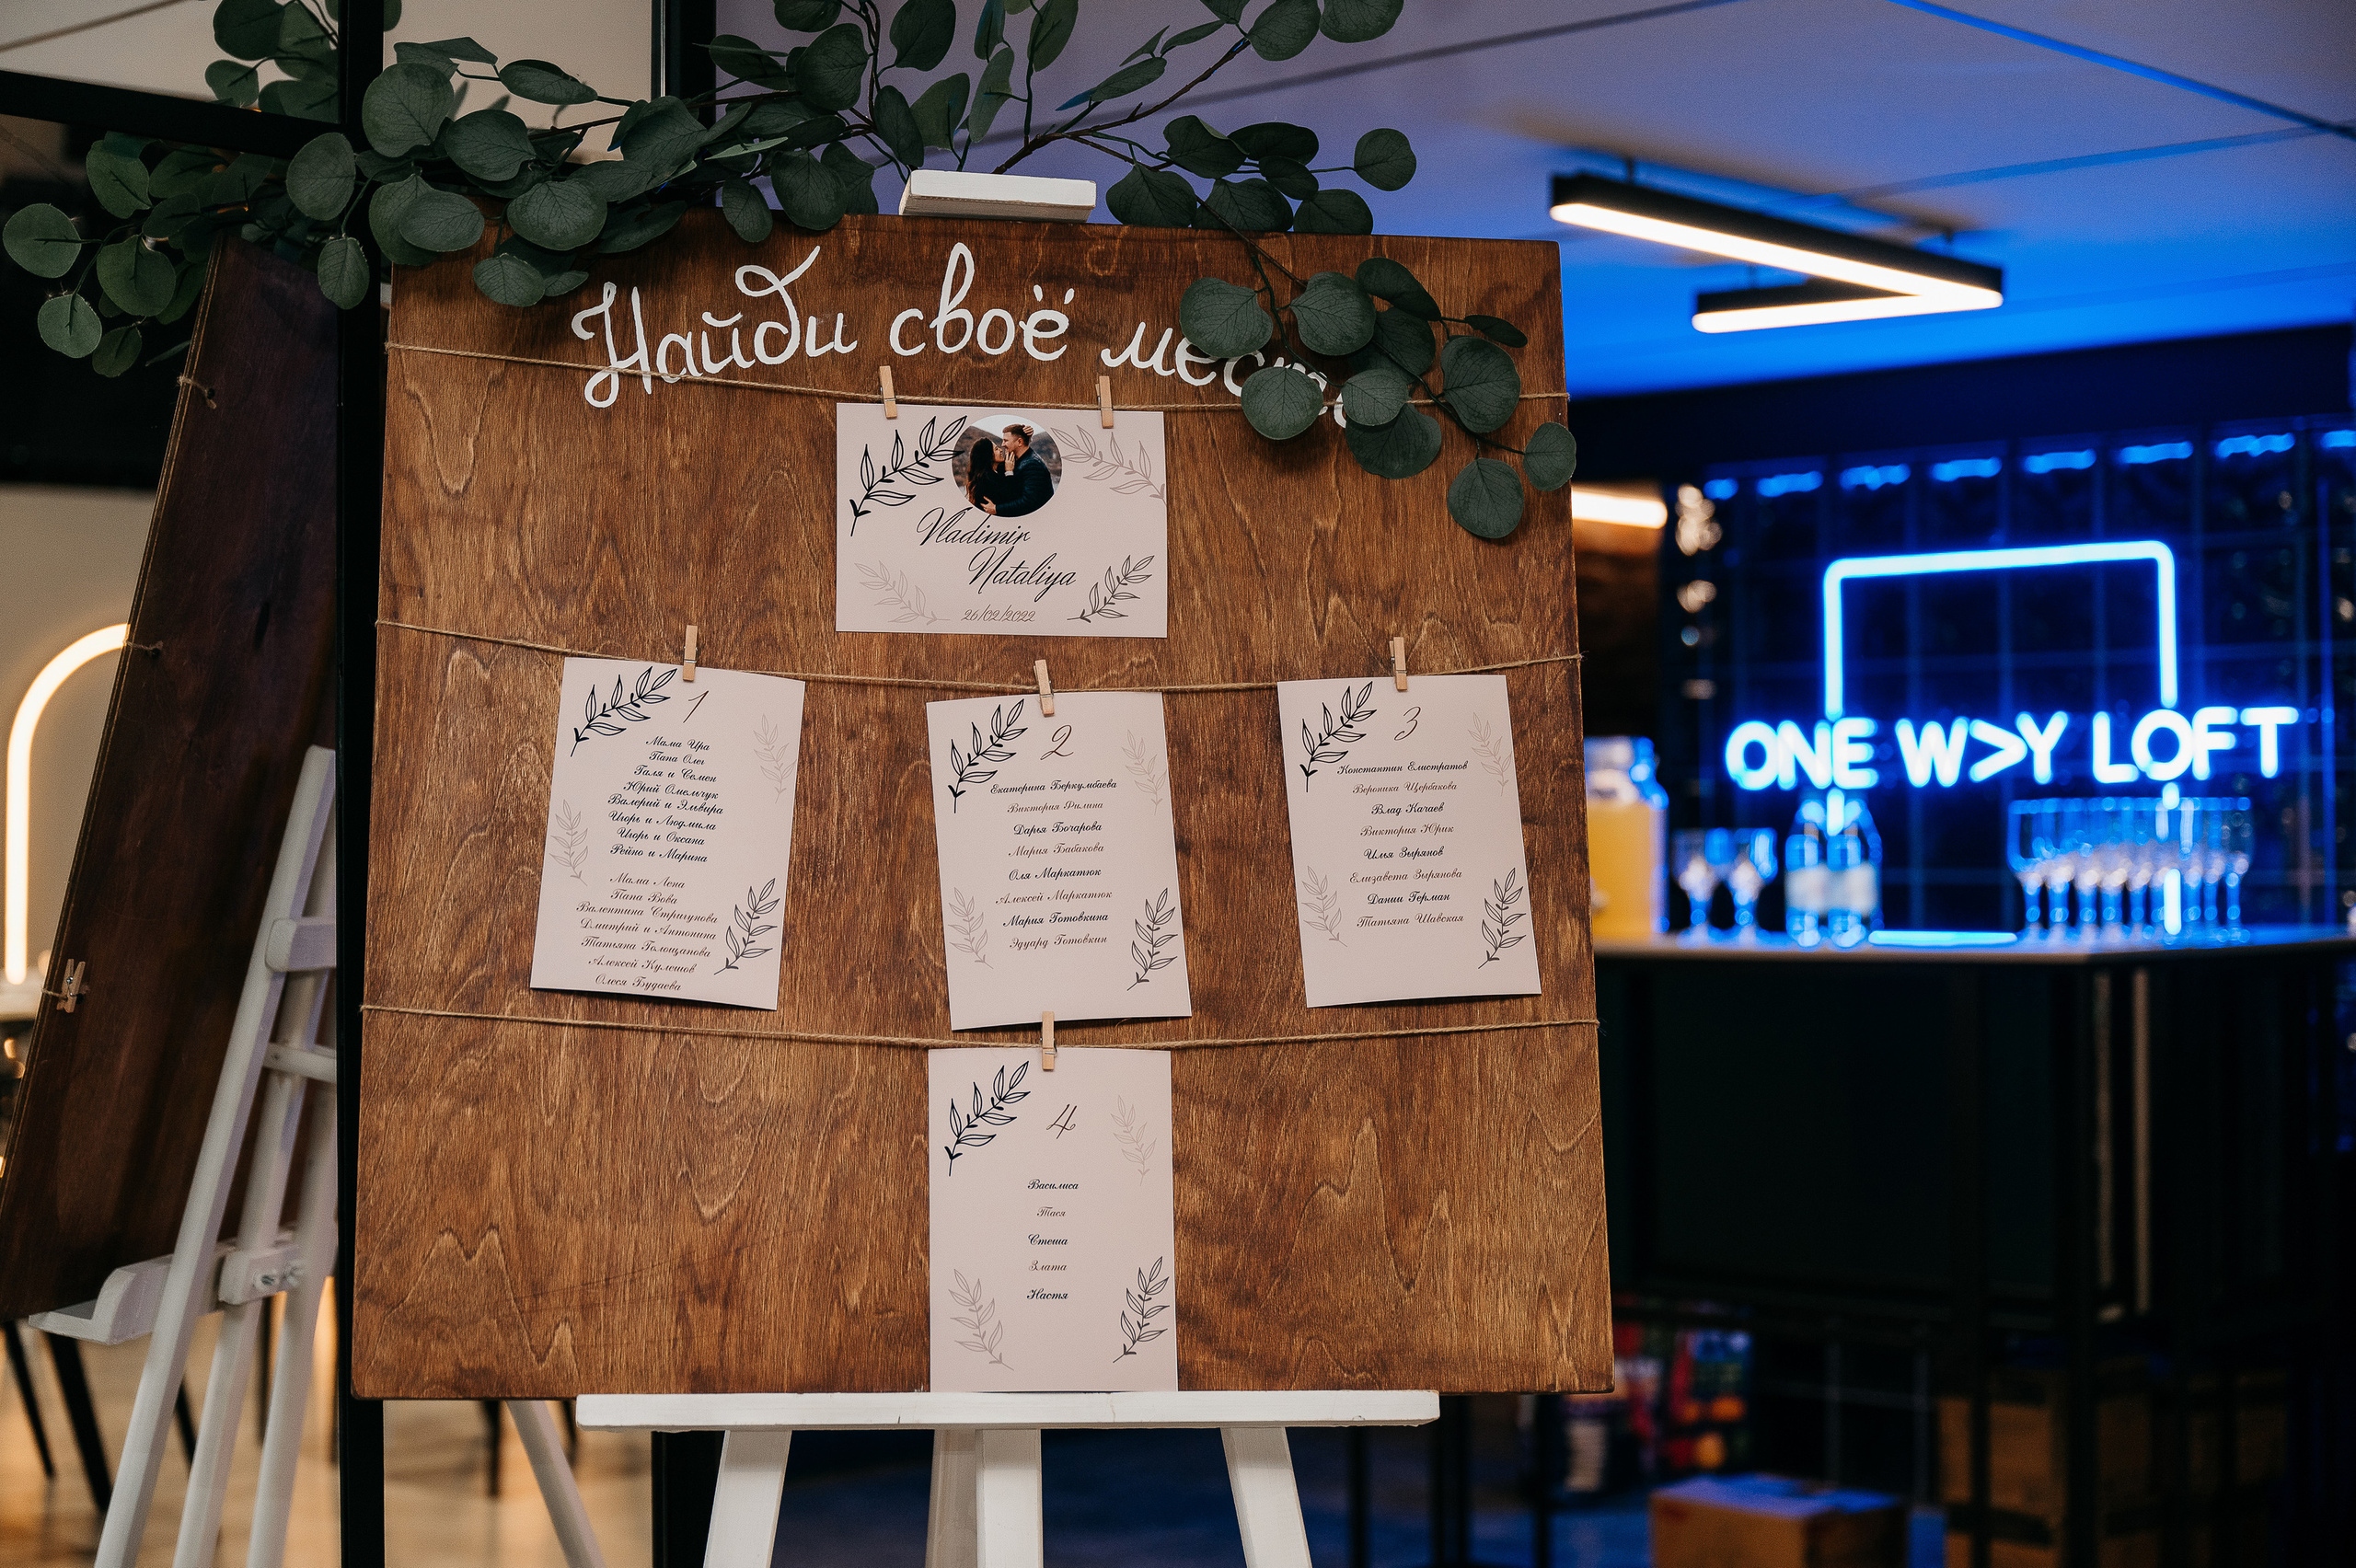 Найди своё место
Vladimir
Nataliya
26/02/2022
1
Мама Ира
Папа Олег
Галя и Семен
Юрий Омельчук
Валерий и Эльвира
Игорь и Людмила
Игорь и Оксана
Рейно и Марина
Мама Лена
Папа Вова
Валентина Стригунова
Дмитрий и Антонина
Татьяна Голощапова
Алексей Кулешов
Олеся Будаева
2
Екатерина Беркумбаева
Виктория Филина
Дарья Бочарова
Мария Бабакова
Оля Маркатюк
Алексей Маркатюк
Мария Готовкина
Эдуард Готовкин
3
Константин Елистратов
Вероника Щербакова
Влад Качаев
Виктория Юрик
Илья Зырянов
Елизавета Зырянова
Дании Герман
Татьяна Шавская
4
Василиса
Тася
Стеша
Злата
Настя
ONE W>Y LOFT